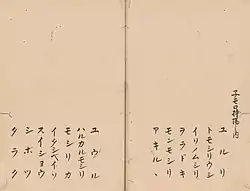 ユルリ
トモシリウシ
イリノムシリ
ヲラドキ
モンモシリ
アキルヽ
ユウル
ハルカルモシリ
モシリカ
イタシベイソ
スイショウ
シホツ
タラク